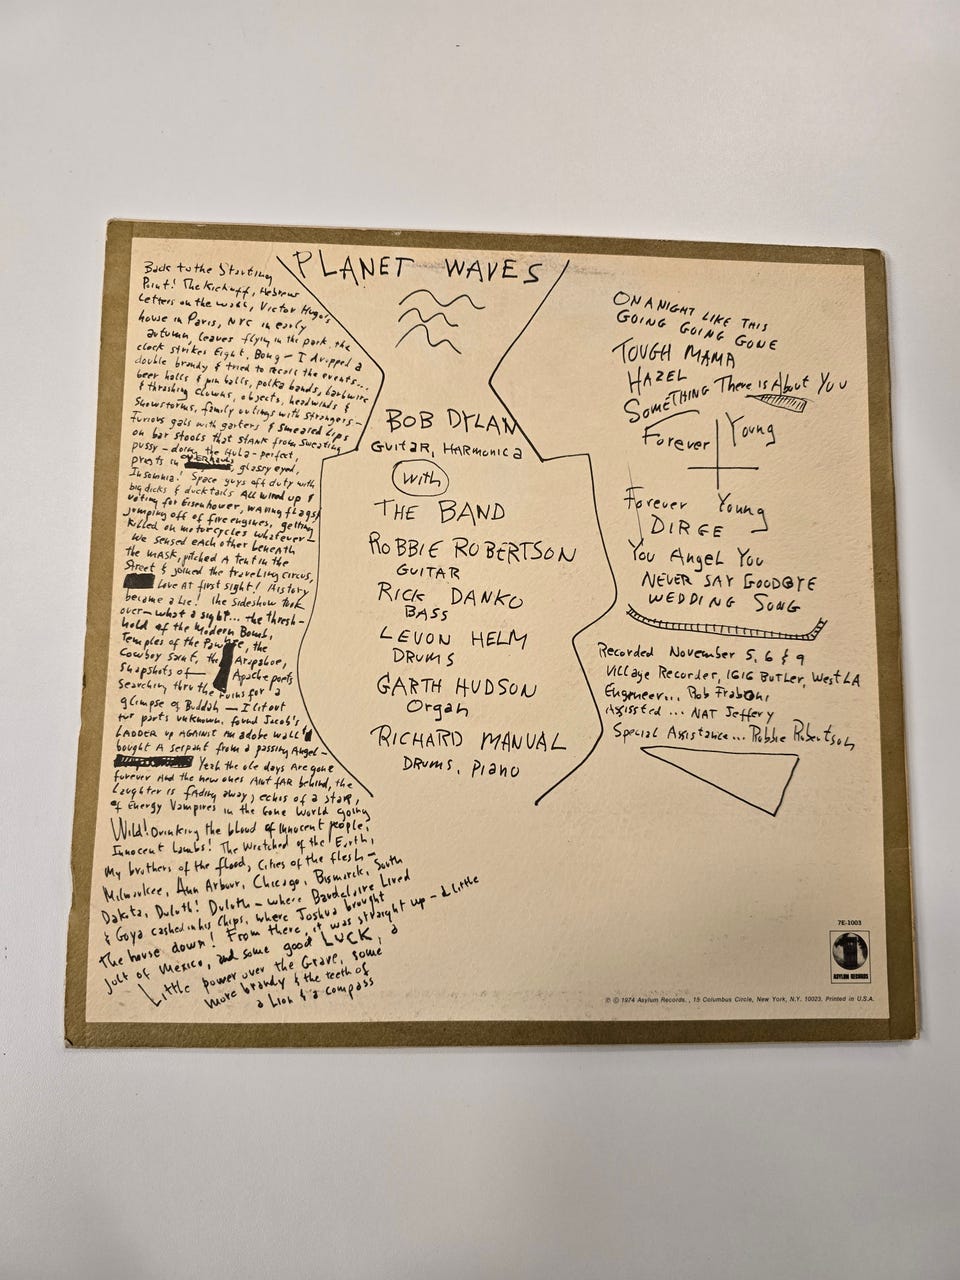 PLANET WAVES
Back to the Starting
Point! The Kickoff, Hebrew
Letters on the wall, Victor Hugo's
house in Paris, NYC in early
autumn, leaves flying in the park, the
clock strikes Eight. Bong - I dropped a
double brandy & tried to recall the events...
beer halls & pin balls, polka bands, barbwire
& thrashing clowns, objects, headwinds &
snowstorms, family outings with strangers -
Furious gals with garters & smeared Lips
on bar stools that stank from sweating
pussy - doing the Hula - perfect,
priests in overhauls, glassy eyed,
Insomnia! Space guys off duty with
big dicks & ducktails All wired up &
voting for Eisenhower, waving flags &
jumping off of fire engines, getting
killed on motorcycles whatever -
We sensed each other beneath
the MASK, pitched a tent in the
Street & joined the traveling circus,
Love AT first sight! History
became a Lie! the sideshow took
over - what a sight... the thresh-
hold of the Modern Bomb,
Temples of the Pawnee, the
Cowboy saint, the Arapahoe,
snapshots of — Apache poets
searching thru the ruins for a
glimpse of Buddah - I lit out
for parts unknown, found Jacob's
LADDER up AGAINST an adobe wall &
bought A serpent from a passing Angel -
Yeah the ole days Are gone
forever And the new ones Aint fAR behind, the
Laughter is fAding away, echos of a star,
of Energy Vampires in the Gone World going
Wild! Drinking the blood of innocent people,
Innocent Lambs! The Wretched of the Earth,
My brothers of the flood, Cities of the flesh -
Milwaukee, Ann Arbour, Chicago, Bismarck, South
Dakota, Duluth! Duluth - where Baudelaire Lived
& Goya cashed in his Chips, where Joshua brought
the house down! From there, it was straight up - a Little
jolt of Mexico, and some good LUCK, a
Little power over the Grave, some
more brandy & the teeth of
a Lion & a compass
BOB DYLAN
Guitar, Harmonica
with
THE BAND
ROBBIE ROBERTSON
GUITAR
RICK DANKO
BASS
LEVON HELM
DRUMS
GARTH HUDSON
Organ
RICHARD MANUAL
DRUMS, PIANO
ON A NIGHT LIKE THIS
GOING GOING GONE
TOUGH MAMA
HAZEL
SOMETHING There is About You
Forever Young
Forever Young
DIRGE
You Angel You
NEVER SAY GOODBYE
WEDDING SONG
Recorded November 5, 6 & 9
Village Recorder, 1616 Butler, West LA
Engineer... Rob Fraboni
Assissted... NAT Jeffery
Special Assistance... Robbie Robertson
7E-1003
ASYLUM RECORDS
℗ © 1974 Asylum Records., 15 Columbus Circle, New York, N.Y. 10023. Printed in U.S.A.